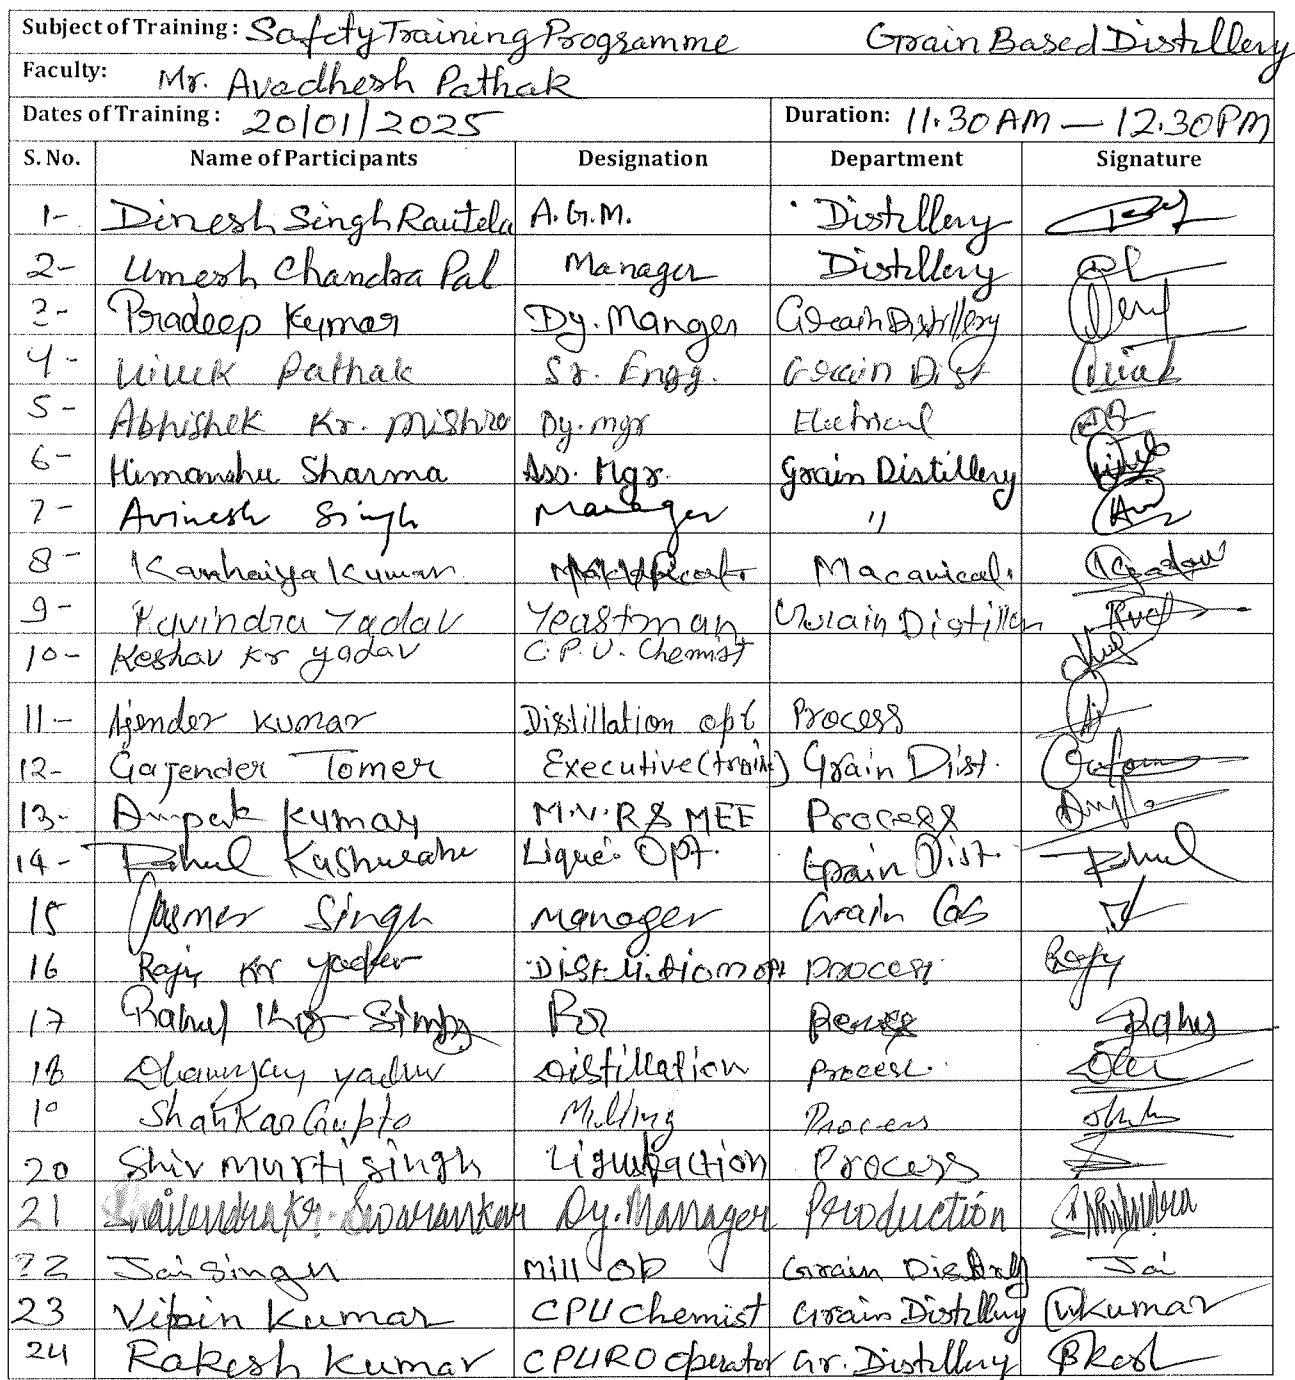 Subject of Training : Safety Training Programme Grain Based Distillery
Faculty: Mr. Avadhesh Pathak
Dates of Training : 20/01/2025 Duration: 11.30 AM — 12.30 PM
S. No. Name of Participants Designation Department Signature
1- Dinesh Singh Rautela A.G.M. Distillery
2- Umesh Chandra Pal Manager Distillery
3- Pradeep Kumar Dy. Manger Grain Distillery
4- Vivek Pathak Sr. Engg. Grain Dist
5- Abhishek Kr. Mishra Dy. mgr Electrical
6- Himanshu Sharma Ass. Mgr. Grain Distillery
7- Avinesh Singh Manager "
8- Kanhaiya Kumar Macanical.
9- Ravindra Yadav Yeastman Grain Distiller
10- Keshav Kr yadav C.P.U. Chemist
11- Ajender Kumar Distillation opt Process
12- Gajender Tomer Executive (train) Grain Dist.
13- Kumar M.V.R & MEE Process
14- Rahul Kashwaha Lique. Opt. Grain Dist.
15 Jasmer Singh Manager Grain
16 Raju Kr yadav Distillation opt process Raju
17 Rahul Singh Rahul
18 Dhananjay yadav Distillation process.
19 Shankar Gupta Milling Process
20 Shiv murti singh Liquifaction Process
21 Shailendra Kr. Swarankar Dy. Manager Production
22 Jai Singh Mill OP Grain Distillery Jai
23 Vipin Kumar CPU Chemist Grain Distillery Vkumar
24 Rakesh Kumar CPURO Operator Gr. Distillery